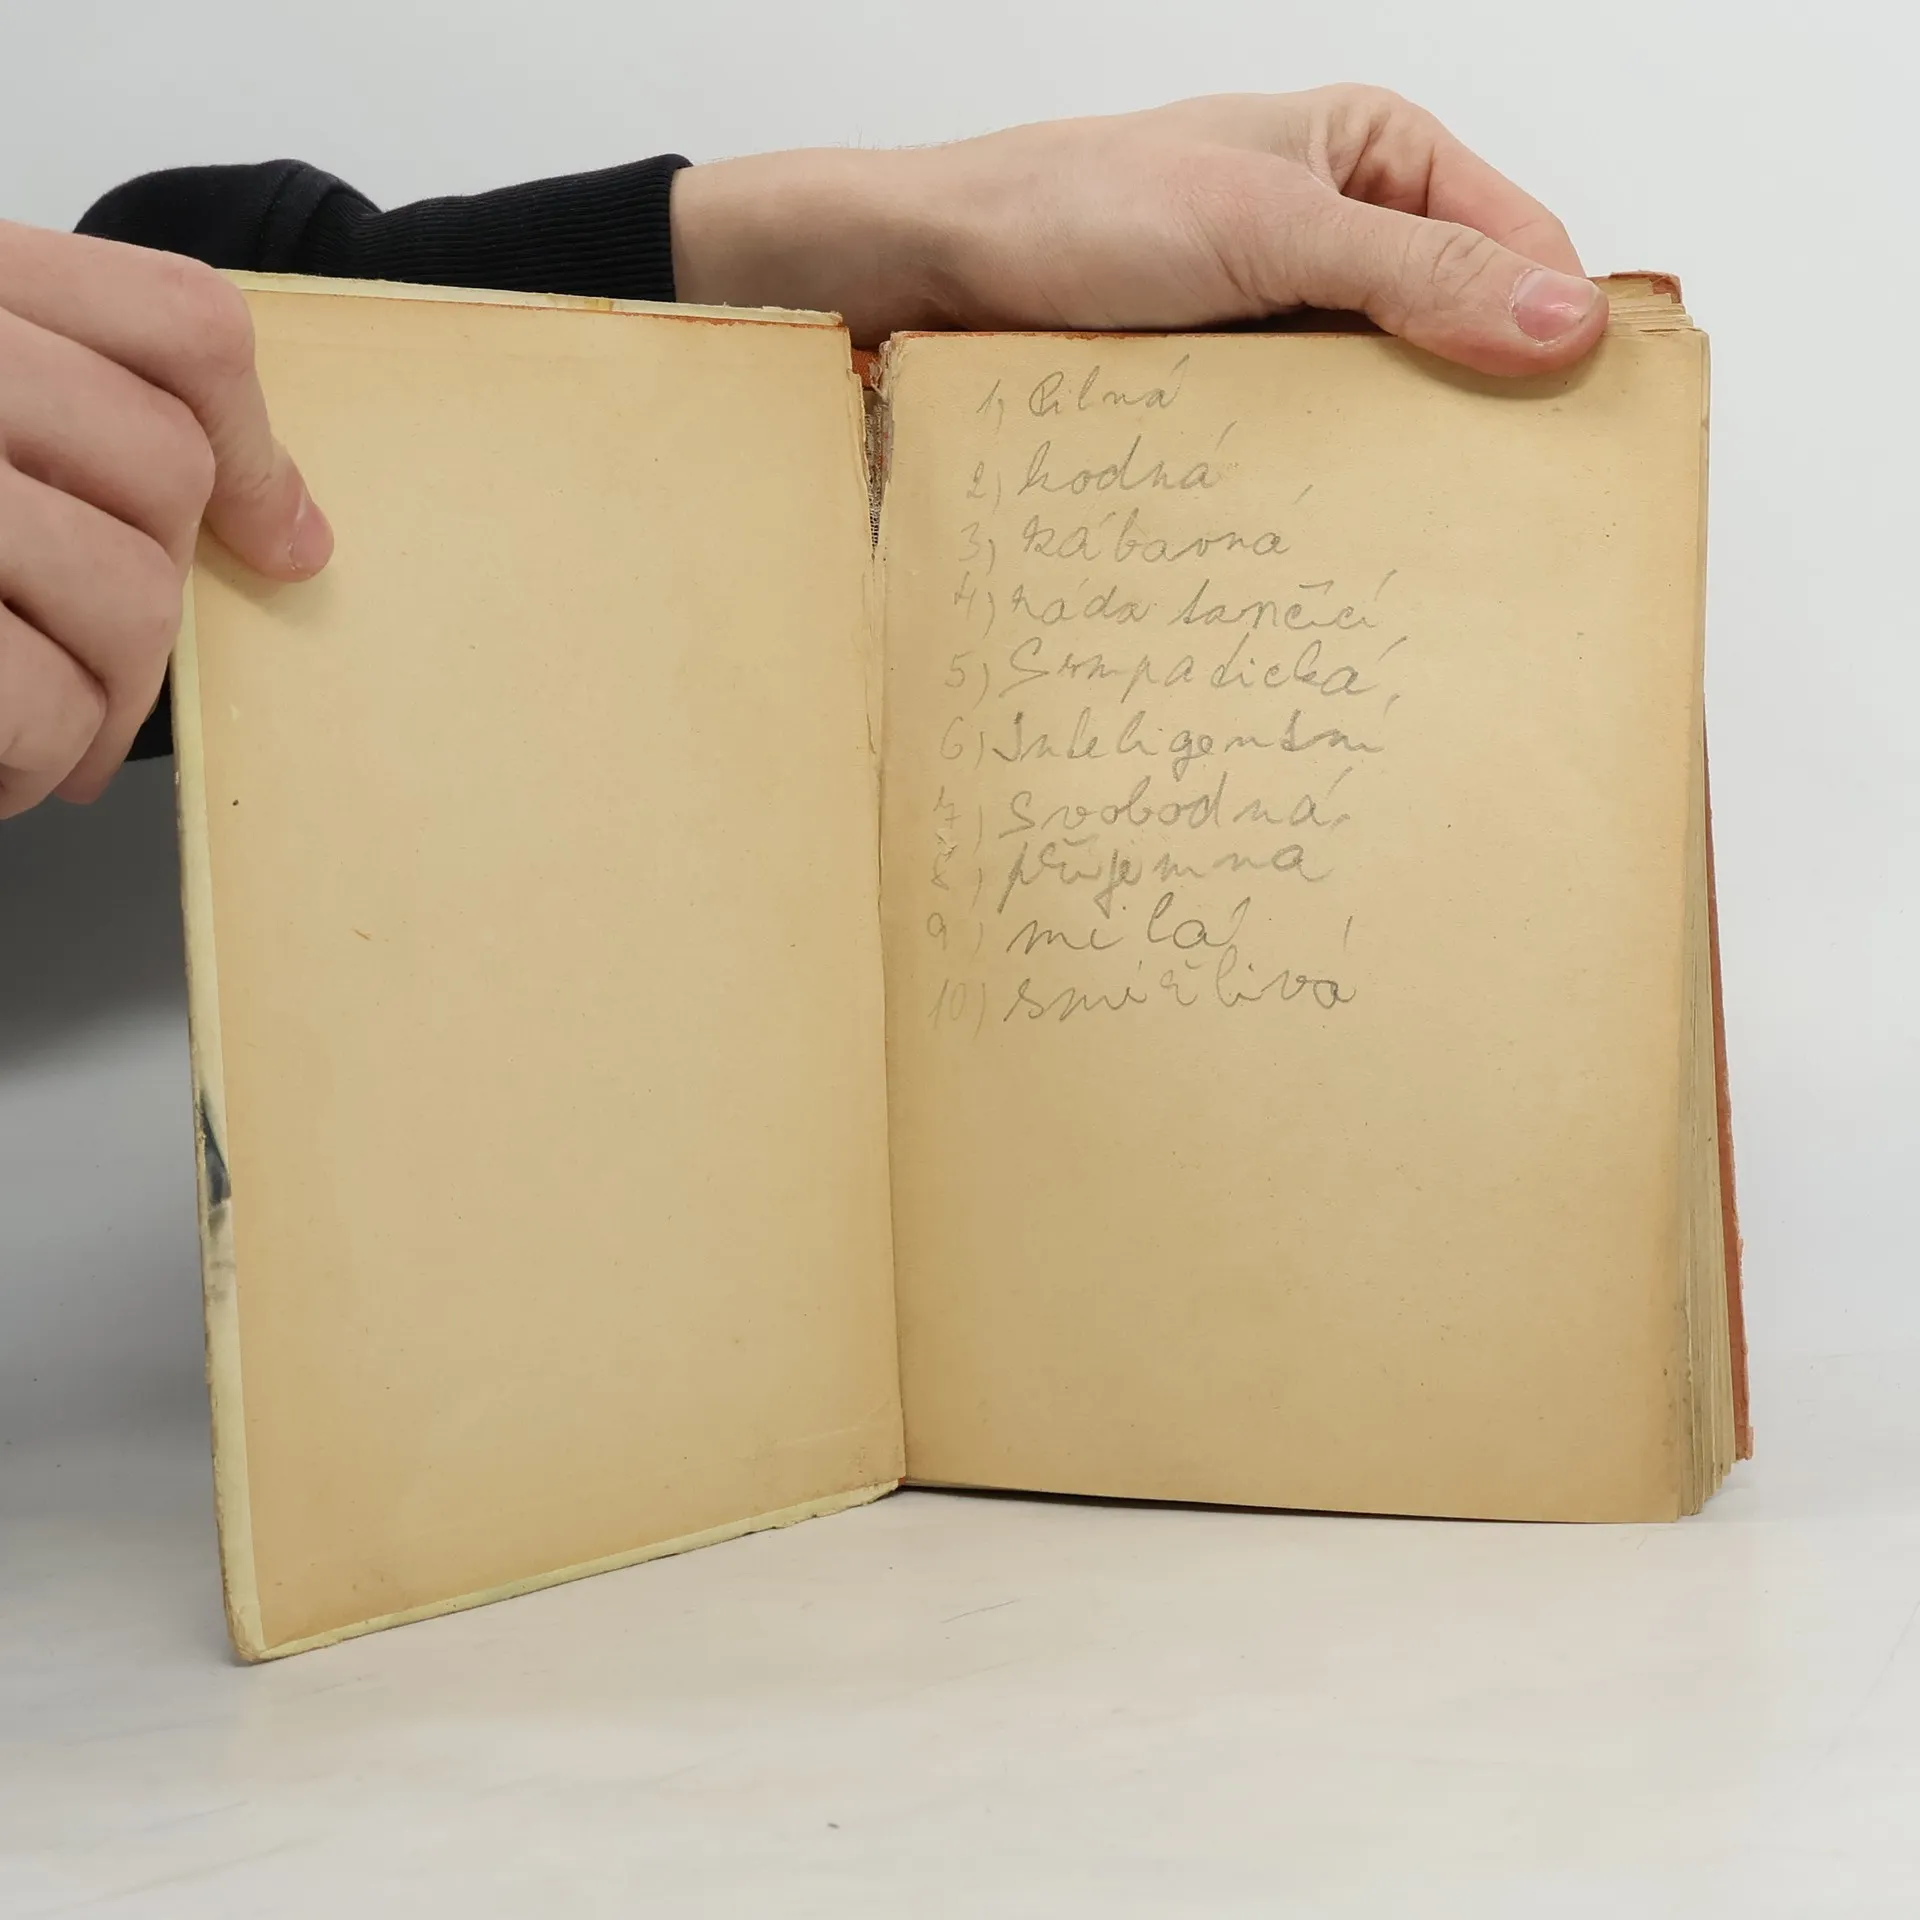 1, Pilná
2) hodná
3, zábavná
4) ráda tančící
5) Sympatická,
6) Inteligentní
7) svobodná,
8, příjemná
9) milá
10) smířlivá